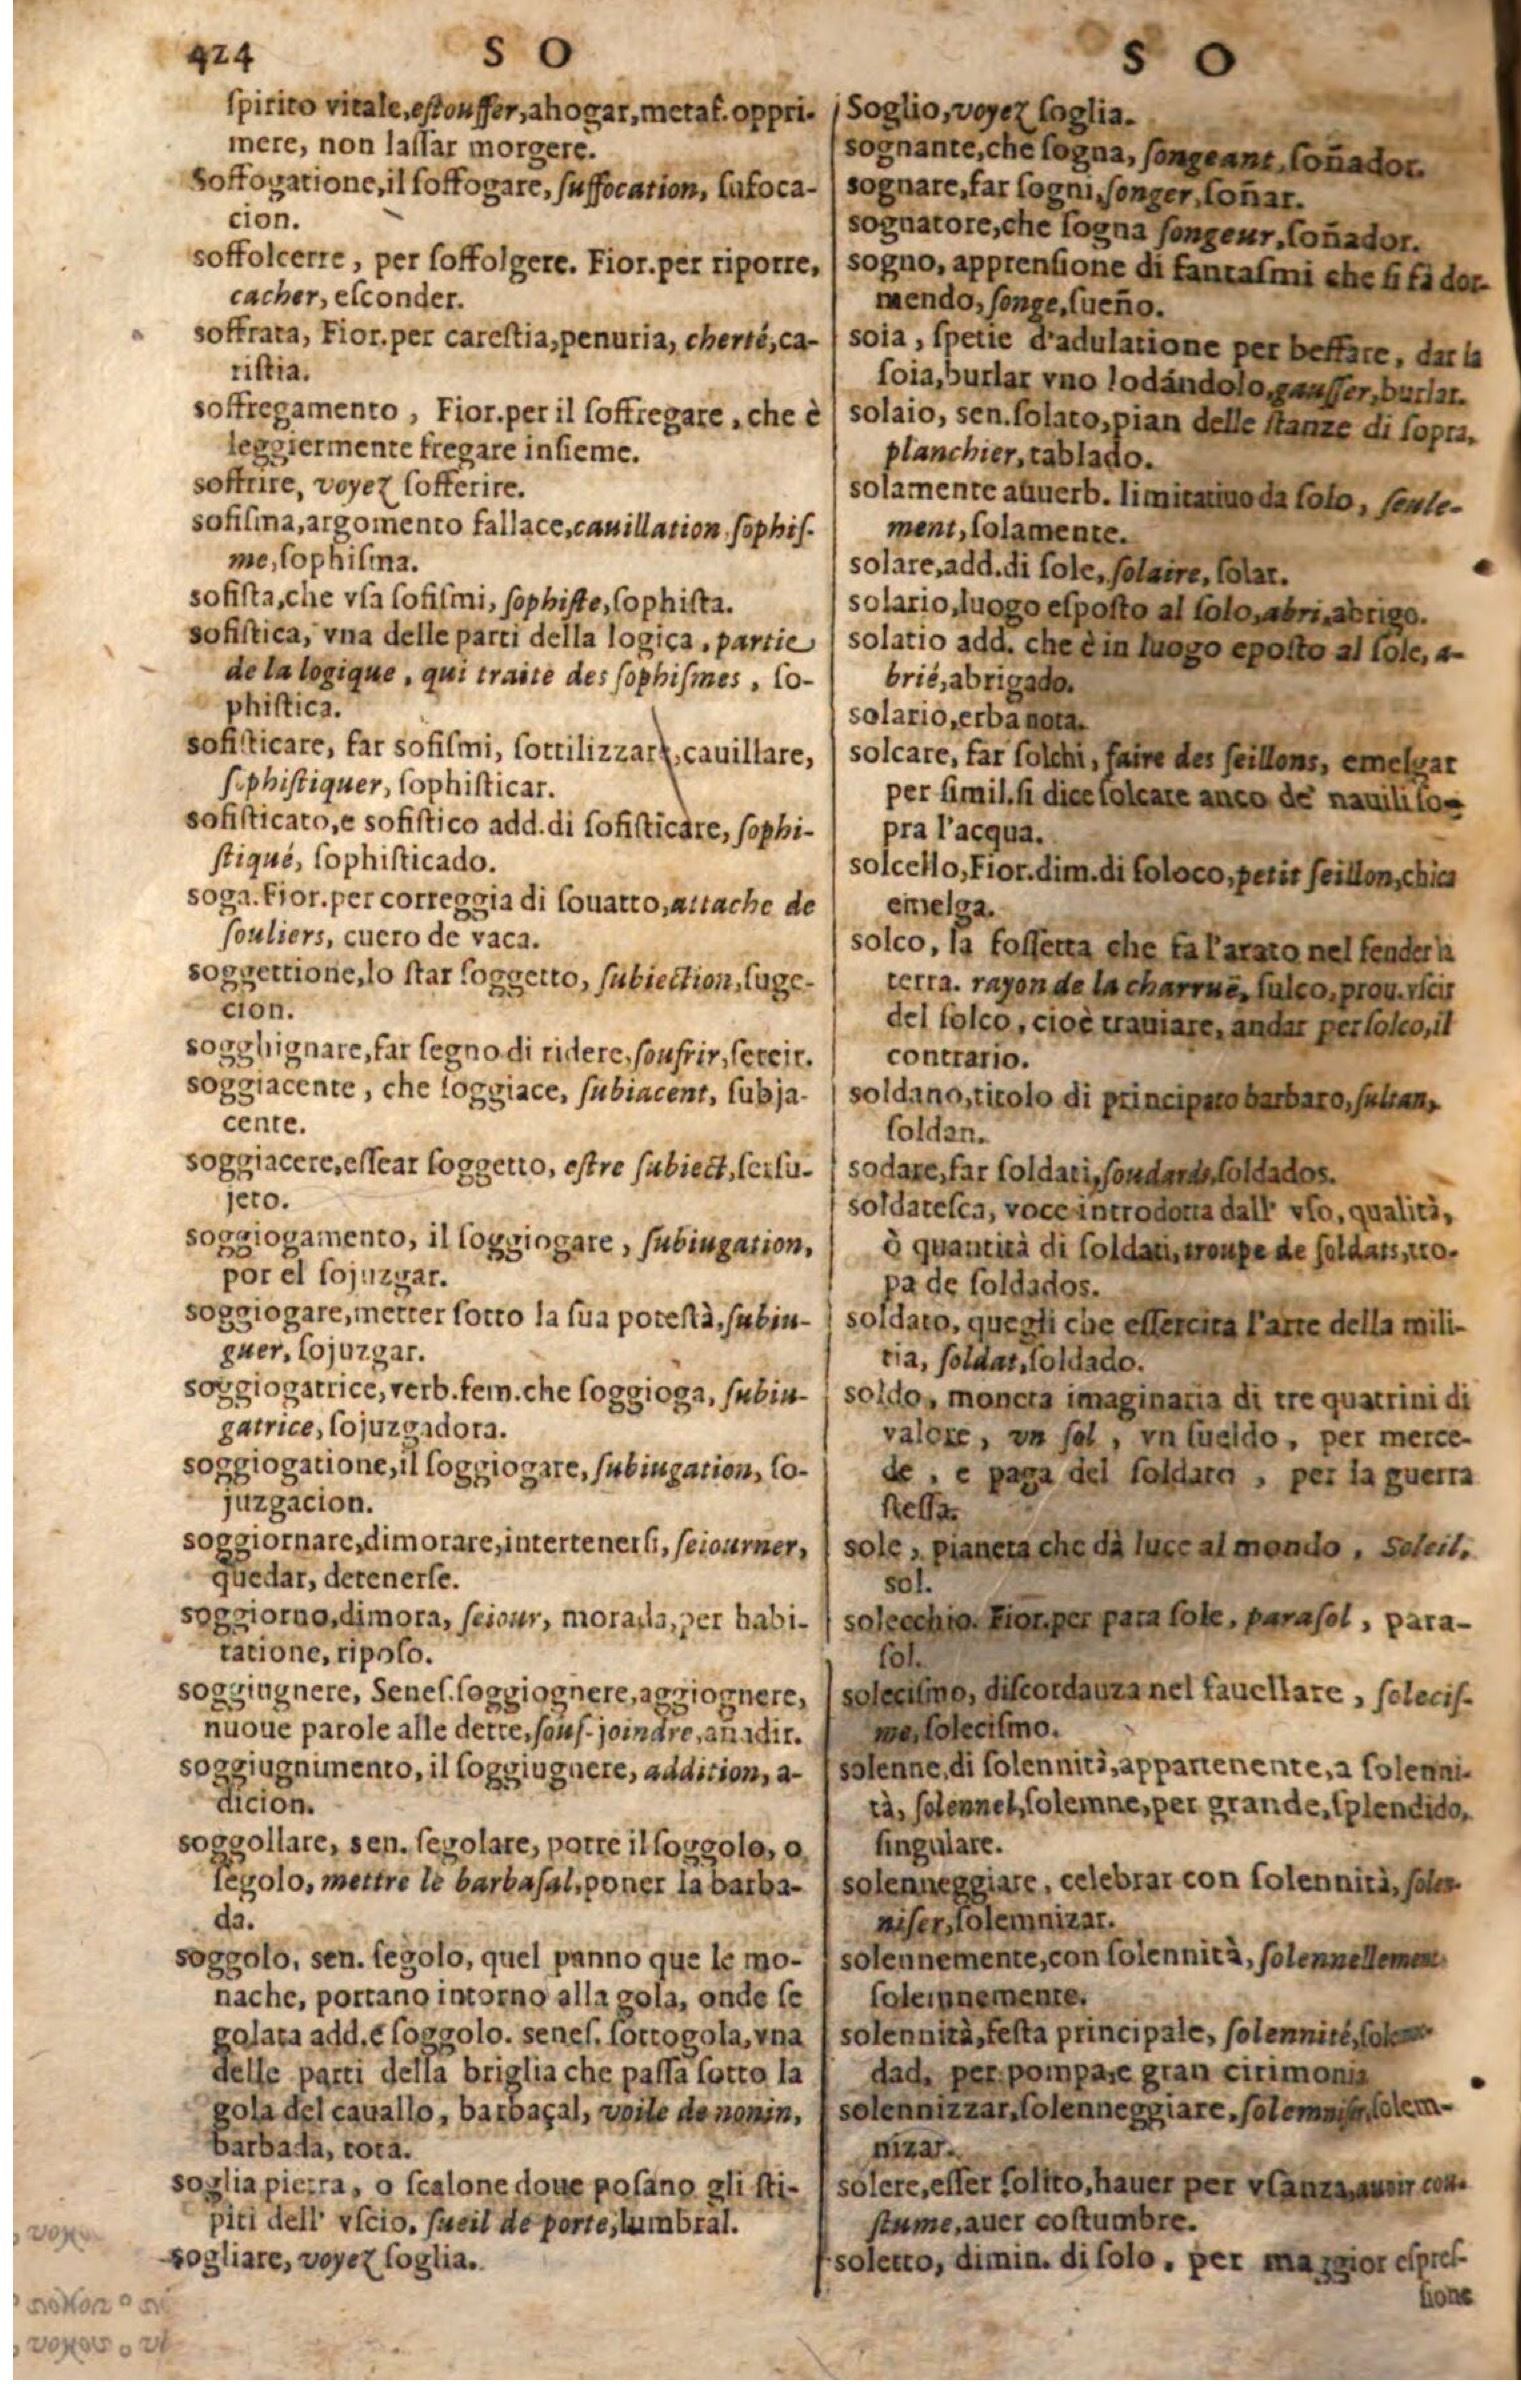 424 S O
spirito vitale, estouffer, ahogar, metaf. oppri-
mere, non lassar morgere.
Soffogatione, il soffogare, suffocation, sufoca-
cion.
soffolcerre, per soffolgere. Fior. per riporre,
cacher, esconder.
soffrata, Fior. per carestia, penuria, cherté, ca-
ristia.
soffregamento, Fior. per il soffregare, che è
leggiermente fregare insieme.
soffrire, voyez sofferire.
sofisma, argomento fallace, cauillation sophis-
me, sophisma.
sofista, che vsa sofismi, sophiste, sophista.
sofistica, vna delle parti della logica, partie
de la logique, qui traite des sophismes, so-
phistica.
sofisticare, far sofismi, sottilizzare, cauillare,
sophistiquer, sophisticar.
sofisticato, e sofistico add. di sofisticare, sophi-
stiqué, sophisticado.
soga. Fior. per correggia di souatto, attache de
souliers, cuero de vaca.
soggettione, lo star soggetto, subiection, suge-
cion.
sogghignare, far segno di ridere, soufrir, sereir.
soggiacente, che soggiace, subiacent, subja-
cente.
soggiacere, essear soggetto, estre subiect, ser su-
jeto.
soggiogamento, il soggiogare, subiugation,
por el sojuzgar.
soggiogare, metter sotto la sua potestà, subiu-
guer, sojuzgar.
soggiogatrice, verb. fem. che soggioga, subiu-
gatrice, sojuzgadora.
soggiogatione, il soggiogare, subiugation, so-
juzgacion.
soggiornare, dimorare, intertenersi, seiourner,
quedar, detenerse.
soggiorno, dimora, seiour, morada, per habi-
tatione, riposo.
soggingnere, Senes. soggiognere, aggiognere,
nuoue parole alle dette, sous-joindre, añadir.
soggiugnimento, il soggiugnere, addition, a-
dicion.
soggollare, sen. segolare, porre il soggolo, o
segolo, mettre le barbasal, poner la barba-
da.
soggolo, sen. segolo, quel panno que le mo-
nache, portano intorno alla gola, onde se
golata add. e soggolo. senes. sottogola, vna
delle parti della briglia che passa sotto la
gola del cauallo, barbaçal, voile de nonin,
barbada, toca.
soglia pietra, o scalone doue posano gli sti-
piti dell' vscio, sueil de porte, lumbral.
sogliare, voyez soglia.
S O
Soglio, voyez soglia.
sognante, che sogna, songeant, soñador.
sognare, far sogni, songer, soñar.
sognatore, che sogna songeur, soñador.
sogno, apprensione di fantasmi che si fà dor-
mendo, songe, sueño.
soia, spetie d'adulatione per beffare, dar la
soia, burlar vno lodándolo, gausser, burlar.
solaio, sen. solato, pian delle stanze di sopra,
planchier, tablado.
solamente auuerb. limitatiuo da solo, seule-
ment, solamente.
solare, add. di sole, solaire, solar.
solario, luogo esposto al solo, abri, abrigo.
solatio add. che è in luogo eposto al sole, a-
brié, abrigado.
solario, erba nota.
solcare, far solchi, faire des seillons, emelgar
per simil. si dice solcare anco de' nauili so-
pra l'acqua.
solcello, Fior. dim. di soloco, petit seillon, chica
emelga.
solco, la fossetta che fa l'arato nel fender la
terra. rayon de la charruë, sulco, prou. vscir
del solco, cioè trauiare, andar per solco, il
contrario.
soldano, titolo di principato barbaro, sultan,
soldan.
sodare, far soldati, soudards, soldados.
soldatesca, voce introdotta dall' vso, qualità,
ò quantità di soldati, troupe de soldats, tro-
pa de soldados.
soldato, quegli che essercita l'arte della mili-
tia, soldat, soldado.
soldo, moneta imaginaria di tre quatrini di
valore, vn sol, vn sueldo, per merce-
de, e paga del soldato, per la guerra
stessa.
sole, pianeta che dà luce al mondo, Soleil,
sol.
solecchio. Fior. per para sole, parasol, para-
sol.
solecismo, discordauza nel fauellare, solecis-
me, solecismo.
solenne, di solennità, appartenente, a solenni-
tà, solennel, solemne, per grande, splendido,
singulare.
solenneggiare, celebrar con solennità, solen-
niser, solemnizar.
solennemente, con solennità, solennellement
solemnemente.
solennità, festa principale, solennité,
dad, per pompa, e gran cirimonia
solennizzar, solenneggiare, solemniser, solem-
nizar.
solere, esser solito, hauer per vsanza, auoir cou-
stume, auer costumbre.
soletto, dimin. di solo, per maggior espres-
sione